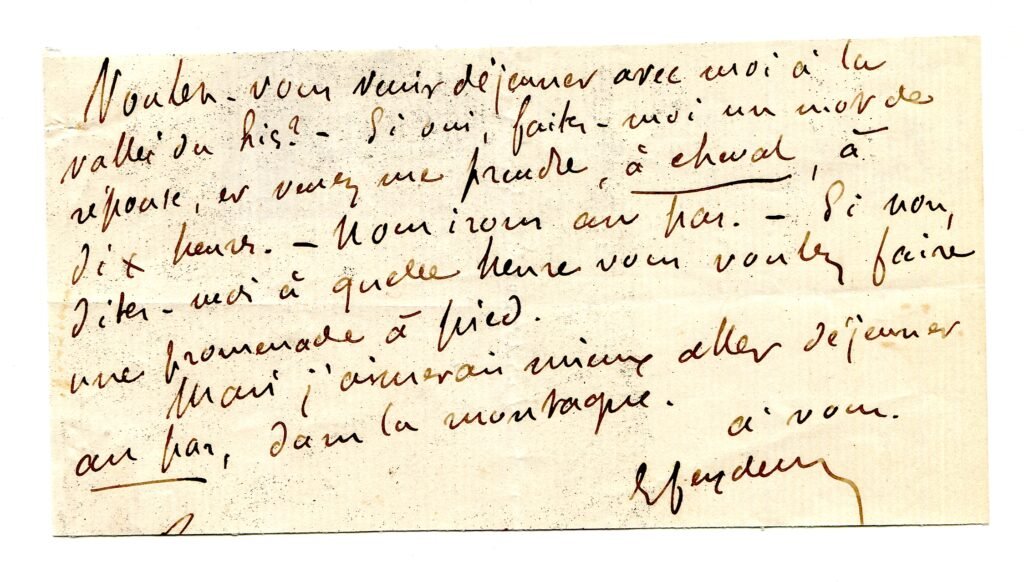 Voulez-vous venir déjeuner avec moi à la
vallée du Lis? – Si oui, faites-moi un mot de
réponse, et venez me prendre, à cheval, à
dix heures. – Nous irons au pas. – Si non,
dites-moi à quelle heure vous voulez faire
une promenade à pied.
Mais j'aimerais mieux aller déjeuner
au pas, dans la montagne.
à vous.
E Feydeau